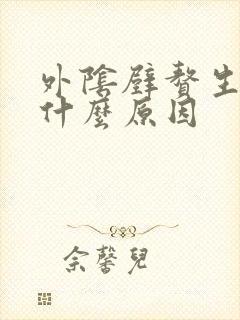 外陰壁贅生
什麼原因
佘馨兒